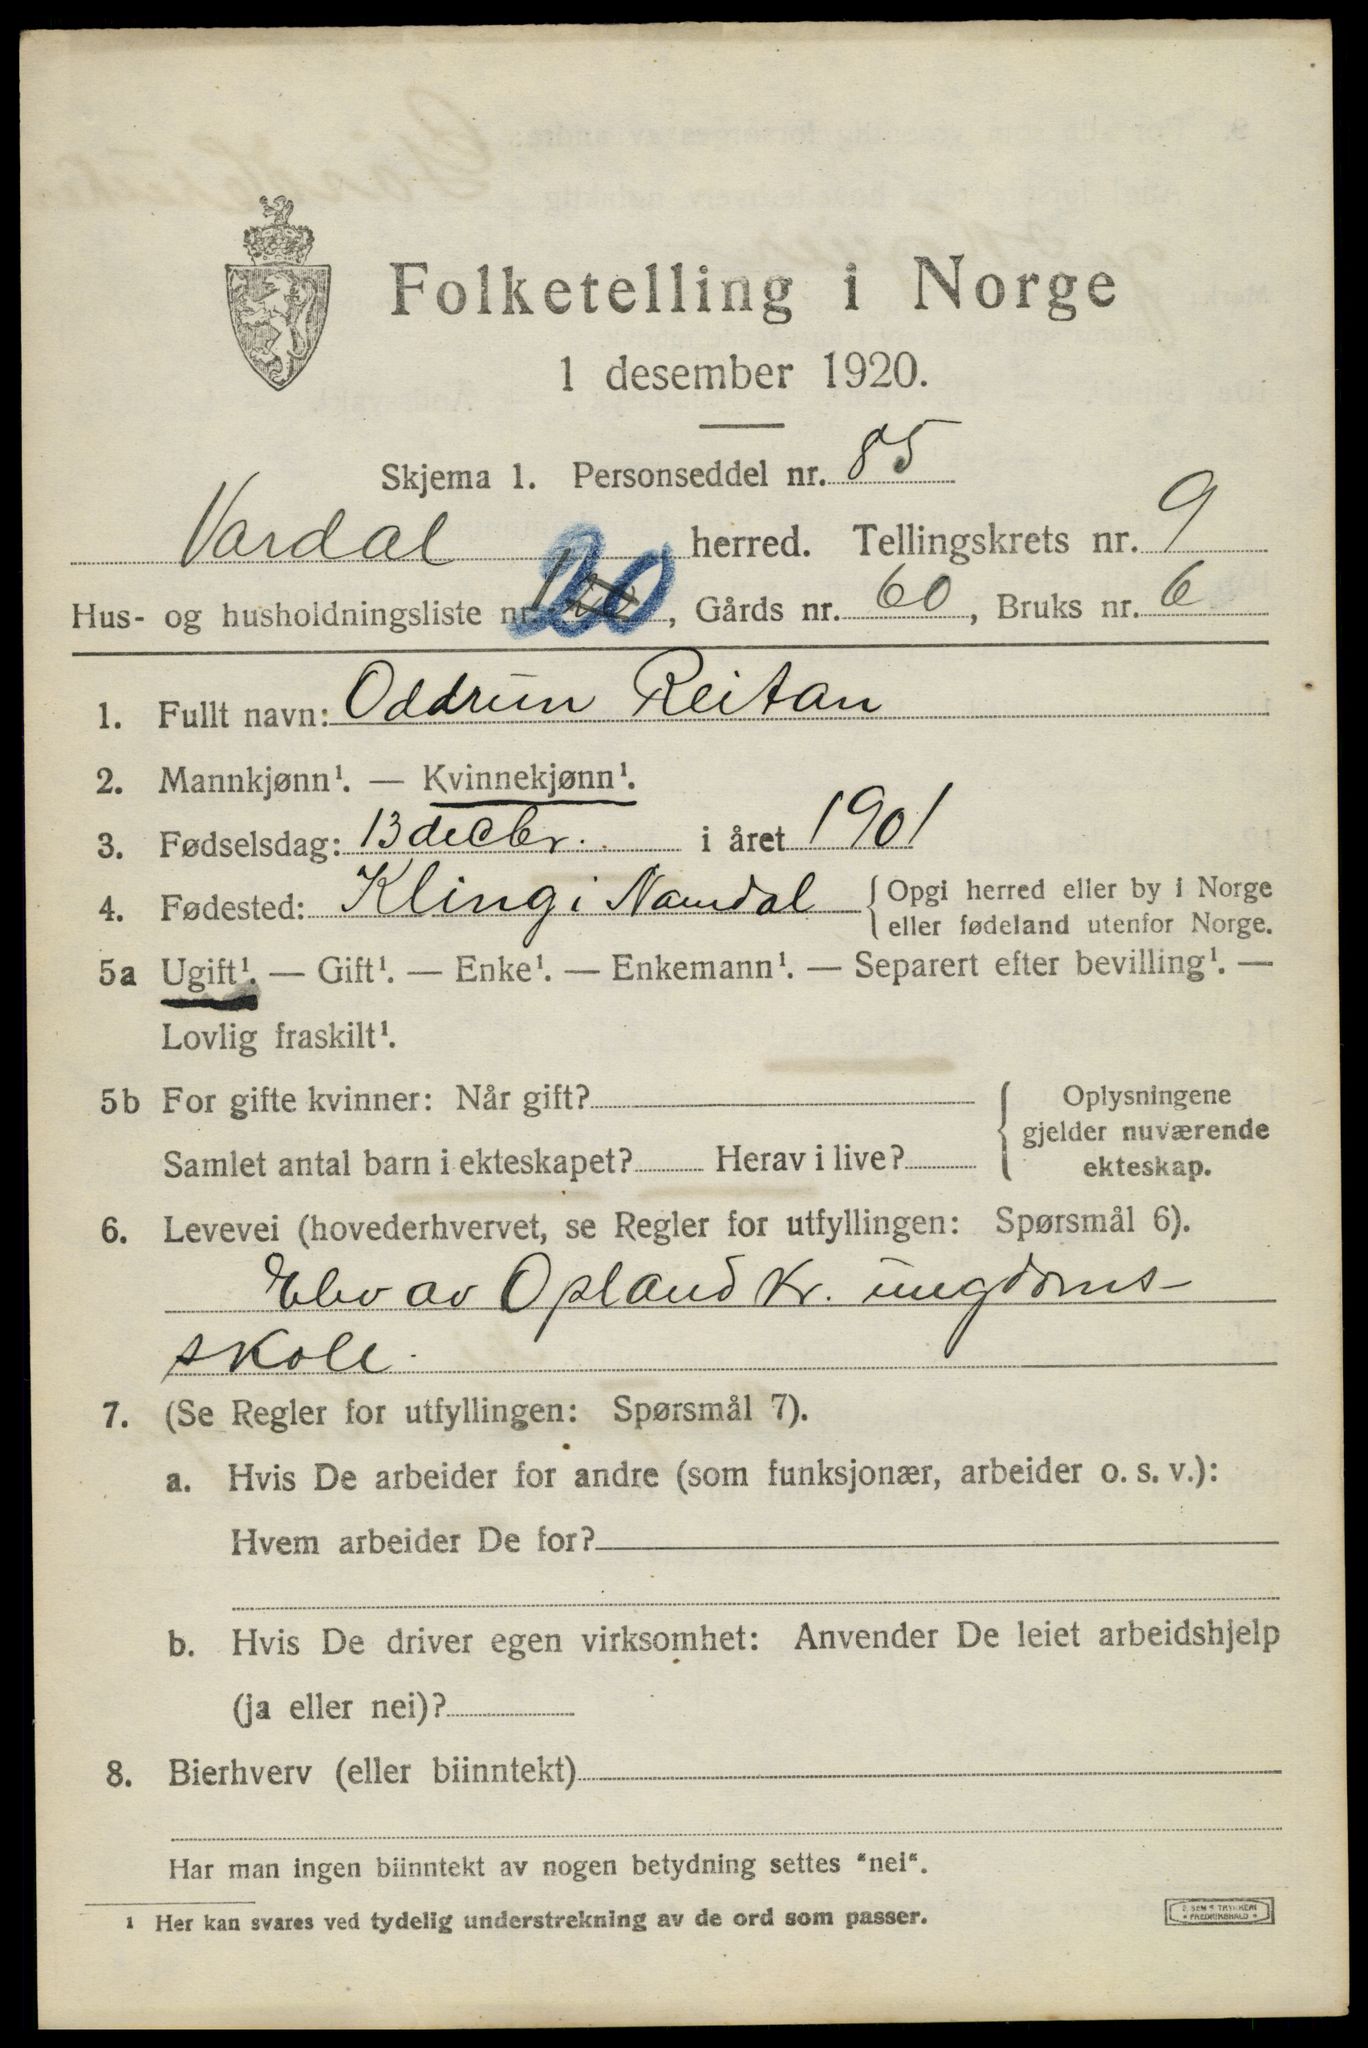 Folketelling i Norge
1 desember 1920.
Skjema 1. Personseddel nr. 85
Vardal herred. Tellingskrets nr. 9
Hus- og husholdningsliste nr. 20, Gårds nr. 60, Bruks nr. 6
1. Fullt navn: Oddrun Reitan
2. Mannkjønn¹. — Kvinnekjønn¹.
3. Fødselsdag: 13 decbr. i året 1901
4. Fødested: Kling i Namdal { Opgi herred eller by i Norge
eller fødeland utenfor Norge.
5a Ugift¹. — Gift¹. — Enke¹. — Enkemann¹. — Separert efter bevilling¹. —
Lovlig fraskilt¹.
5b For gifte kvinner: Når gift?
Samlet antal barn i ekteskapet? Herav i live?
Oplysningene
gjelder nuværende
ekteskap.
6. Levevei (hovederhvervet, se Regler for utfyllingen: Spørsmål 6).
Elev av Opland Kr. ungdoms-
skole.
7. (Se Regler for utfyllingen: Spørsmål 7).
a. Hvis De arbeider for andre (som funksjonær, arbeider o. s. v.):
Hvem arbeider De for?
b. Hvis De driver egen virksomhet: Anvender De leiet arbeidshjelp
(ja eller nei)?
8. Bierhverv (eller biinntekt)
Har man ingen biinntekt av nogen betydning settes "nei".
¹ Her kan svares ved tydelig understrekning av de ord som passer.